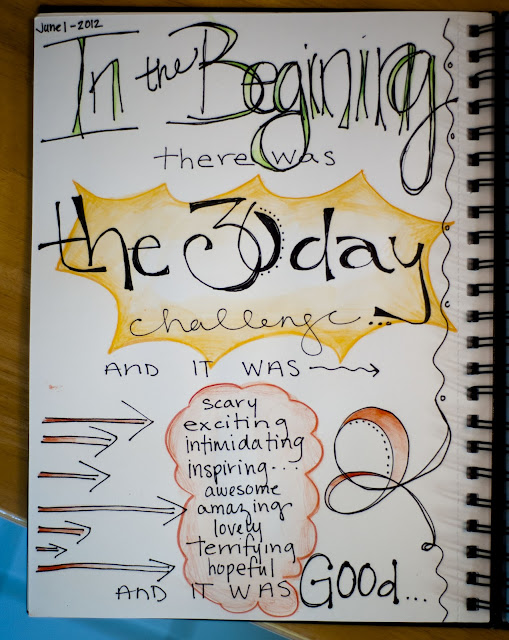 June 1 - 2012
In the Begining
there was
the 30 day
challenge...
AND IT WAS
scary
exciting
intimidating
inspiring...
awesome
amazing
lovely
Terrifying
hopeful
AND IT WAS GOOd...